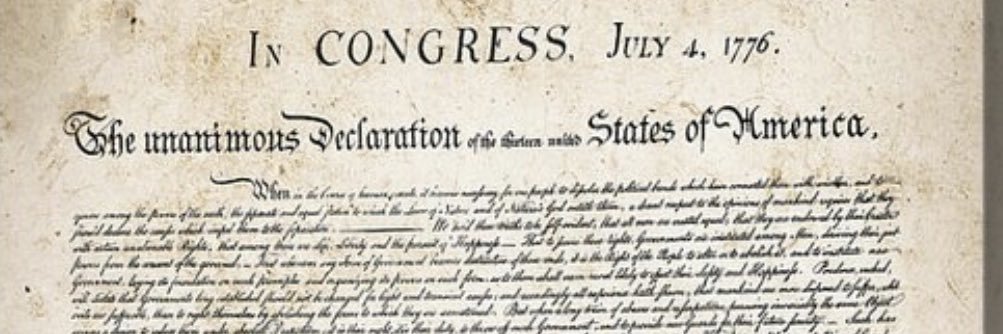 In CONGRESS, July 4, 1776.
The unanimous Declaration of the thirteen united States of America,
When in the Course of human it becomes necessary for one people to dissolve the political bands which have connected them with another, and to
among the powers of the earth, the separate and equal station to which the Laws of Nature and of Nature's God entitle them, a decent respect to the opinions of mankind requires that they
should declare the causes which impel them to the separation. We hold these truths to be self-evident, that all men are created equal, that they are endowed by their
with certain unalienable Rights, that among these are Life, Liberty and the pursuit of Happiness. — That to secure these rights, Governments are instituted among Men, deriving their just
powers from the consent of the governed, — That whenever any Form of Government becomes destructive of these ends, it is the Right of the People to alter or to abolish it, and to institute new
Government, laying its foundation on such principles and organizing its powers in such form, as to them shall seem most likely to effect their Safety and Happiness. Prudence, indeed,
will dictate that Governments long established should not be changed for light and transient causes; and accordingly all experience hath shewn, that mankind are more disposed to suffer, while
evils are sufferable, than to right themselves by abolishing the forms to which they are accustomed. But when a long train of abuses and usurpations, pursuing invariably the same Object